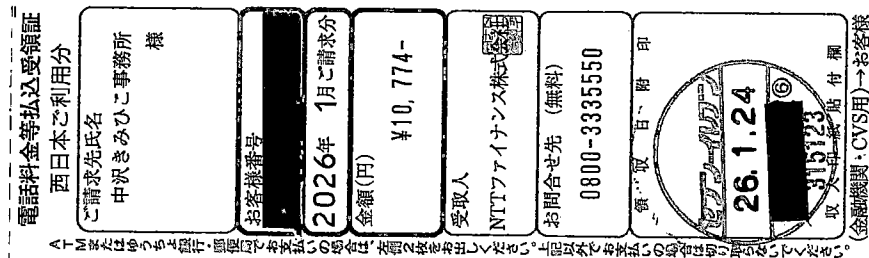 電話料金等払込受領証
西日本ご利用分
ご請求先氏名
中沢きみひこ事務所
様
お客様番号
2026年 1月ご請求分
金額(円)
¥10,774-
受取人
NTTファイナンス株式会社
お問合せ先 (無料)
0800-3335550
領収日附印
セブン-イレブン
26.1.24
⑥
315123
収入印紙貼付欄
(金融機関・CVS用)→お客様
ATMまたはゆうちょ銀行・郵便局でお支払いの場合は、左側2枚をお出しください。上記以外でお支払いの場合は切り取らないでください。